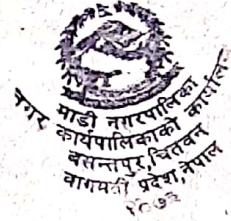 माडी नगरपालिका
नगर कार्यपालिकाको कार्यालय
बसन्तपुर, चितवन
वागमती प्रदेश, नेपाल
२०७३